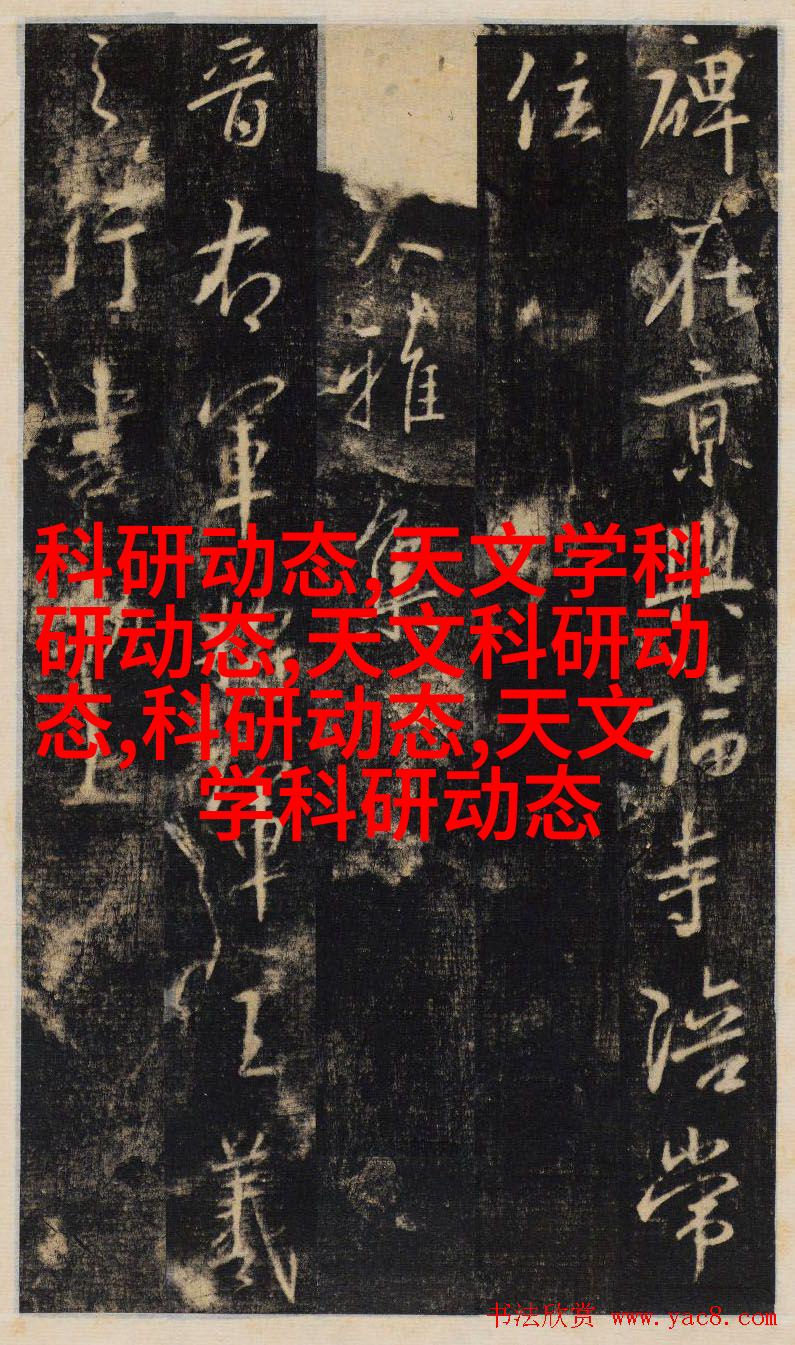 碑在京興福寺陪常
住
大雅集
晉右軍將軍王羲
之行書勒上
科研动态,天文学科
研动态,天文科研动
态,科研动态,天文
学科研动态
书法欣赏 www.yac8.com